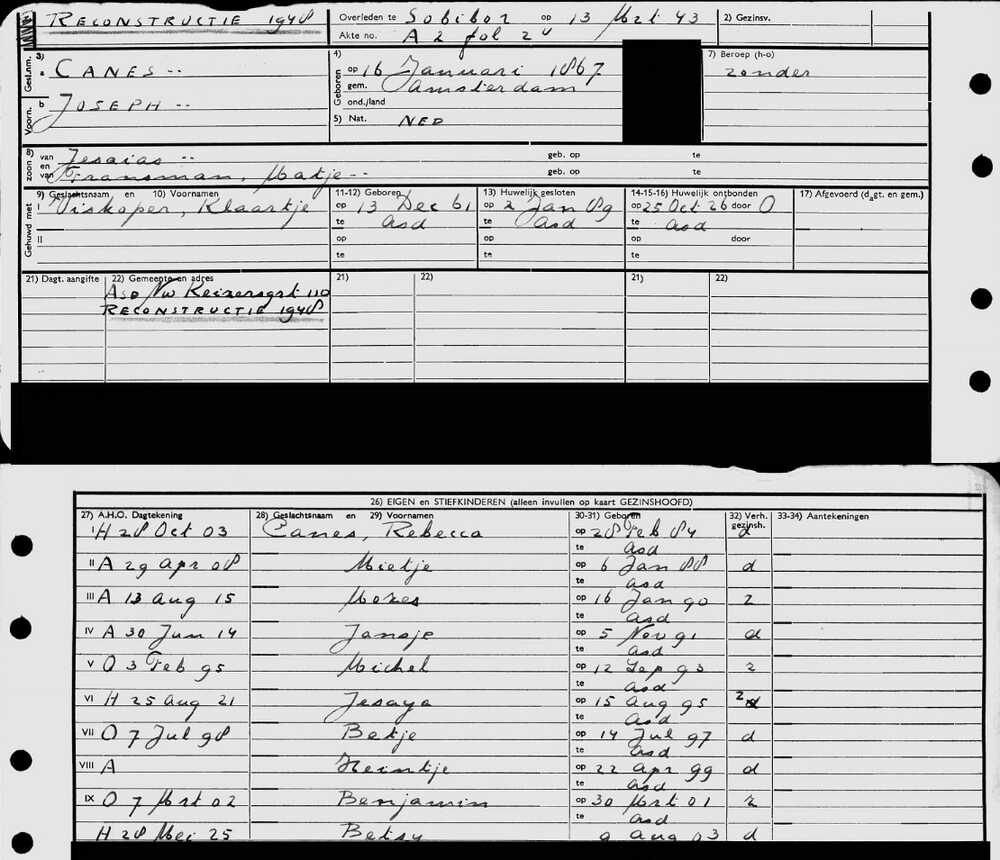 RECONSTRUCTIE 1948 Overleden te Sobibor op 13 Mrt 43 2) Gezinsv.
Akte no. A 2 fol 2
Gesl.nm. 3) a CANES -- 4) Geboren op 16 Januari 1867 7) Beroep (h-o) zonder
gem. Amsterdam
Voorn. b JOSEPH -- ond./land
5) Nat. NED
8) zoon van Jesaias -- geb. op te
en van Fransman, Matje -- geb. op te
9) Geslachtsnaam en 10) Voornamen 11-12) Geboren 13) Huwelijk gesloten 14-15-16) Huwelijk ontbonden 17) Afgevoerd (dagt. en gem.)
Gehuwd met I Viskoper, Klaartje op 13 Dec 61 op 2 Jan 89 op 25 Oct 26 door O
te Asd te Asd te Asd
II op op op door
te te te
21) Dagt. aangifte 22) Gemeente en adres 21) 22) 21) 22)
Asd Nw Keizersgrt 110
RECONSTRUCTIE 1948
26) EIGEN en STIEFKINDEREN (alleen invullen op kaart GEZINSHOOFD)
27) A.H.O. Dagtekening 28) Geslachtsnaam en 29) Voornamen 30-31) Geboren 32) Verh. gezinsh. 33-34) Aantekeningen
I H 28 Oct 03 Canes, Rebecca op 28 Feb 84 d
te Asd
II A 29 Apr 08 Mietje op 6 Jan 88 d
te Asd
III A 13 Aug 15 Mozes op 16 Jan 90 z
te Asd
IV A 30 Jun 14 Jansje op 5 Nov 91 d
te Asd
V O 3 Feb 95 Michel op 12 Sep 93 z
te Asd
VI H 25 Aug 21 Jesaya op 15 Aug 95 z
te Asd
VII O 7 Jul 98 Betje op 14 Jul 97 d
te Asd
VIII A Heintje op 22 Apr 99 d
te Asd
IX O 7 Mrt 02 Benjamin op 30 Mrt 01 z
te Asd
H 28 Mei 25 Betsy 9 Aug 03 d